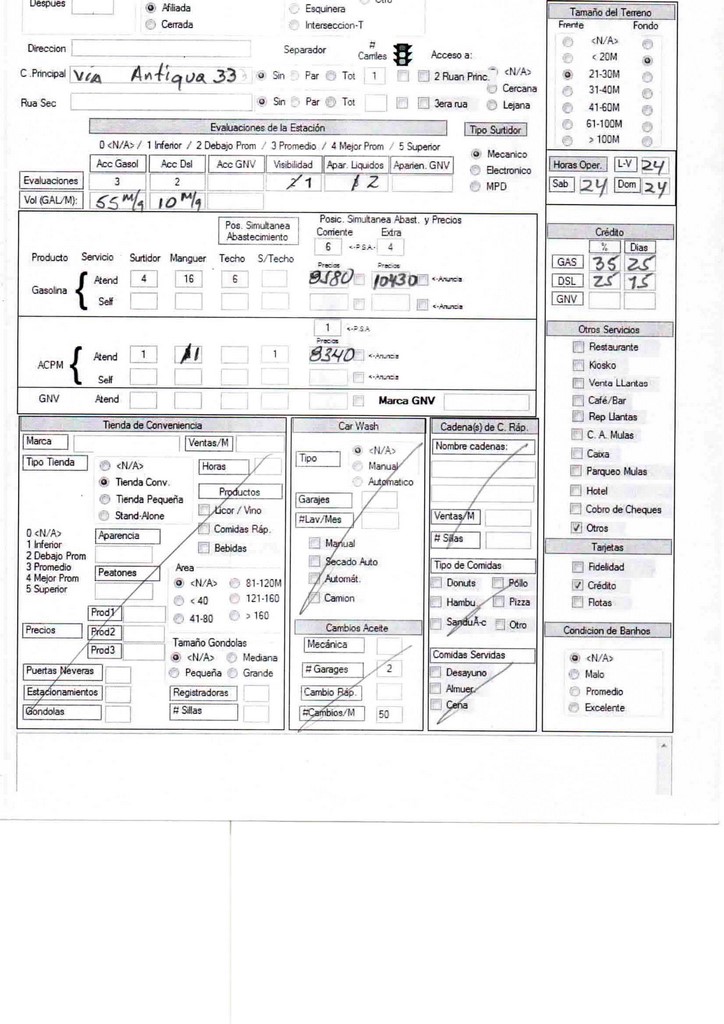 Despues
Afiliada
Esquinera
Cerrada
Interseccion-T
Tamaño del Terreno
Frente Fondo
<N/A>
< 20M
21-30M
31-40M
41-60M
61-100M
> 100M
Direccion Separador # Carriles Acceso a:
C .Principal Vía Antigua 33 Sin Par Tot 1 2 Ruan Princ. <N/A>
Cercana
Rua Sec Sin Par Tot 3era rua Lejana
Evaluaciones de la Estación
Tipo Surtidor
0 <N/A> / 1 Inferior / 2 Debajo Prom / 3 Promedio / 4 Mejor Prom / 5 Superior
Mecanico
Electronico
MPD
Acc Gasol Acc Dsl Acc GNV Visibilidad Apar. Liquidos Aparien. GNV
Evaluaciones 3 2 1 2
Vol (GAL/M): 55 M/g 10 M/g
Horas Oper. L-V 24
Sab 24 Dom 24
Pos. Simultanea Abastecimiento
Posic. Simultanea Abast. y Precios
Corriente Extra
6 <-P.S.A.- 4
Producto Servicio Surtidor Manguer Techo S/Techo Precios Precios
Gasolina Atend 4 16 6 9580 10430 <-Anuncia
Self <-Anuncia
1 <-P.S.A
Precios
ACPM Atend 1 1 1 8340 <-Anuncia
Self <-Anuncia
GNV Atend Marca GNV
Crédito
% Dias
GAS 35 25
DSL 25 15
GNV
Otros Servicios
Restaurante
Kiosko
Venta LLantas
Café/Bar
Rep Llantas
C. A. Mulas
Caixa
Parqueo Mulas
Hotel
Cobro de Cheques
Otros
Tarjetas
Fidelidad
Crédito
Flotas
Condicion de Banhos
<N/A>
Malo
Promedio
Excelente
Tienda de Conveniencia
Marca Ventas/M
Tipo Tienda <N/A> Horas
Tienda Conv.
Tienda Pequeña Productos
Stand-Alone Licor / Vino
Comidas Ráp.
Bebidas
0 <N/A> Aparencia
1 Inferior
2 Debajo Prom
3 Promedio Peatones
4 Mejor Prom
5 Superior
Area
<N/A> 81-120M
< 40 121-160
41-80 > 160
Prod1
Precios Prod2
Prod3
Tamaño Gondolas
<N/A> Mediana
Pequeña Grande
Puertas Neveras
Estacionamientos Registradoras
Gondolas # Sillas
Car Wash
Tipo <N/A>
Manual
Automatico
Garajes
#Lav/Mes
Manual
Secado Auto
Automát.
Camion
Cambios Aceite
Mecánica
# Garages 2
Cambio Ráp.
#Cambios/M 50
Cadena(s) de C. Ráp.
Nombre cadenas:
Ventas/M
# Sillas
Tipo de Comidas
Donuts Pollo
Hambu Pizza
SanduÃ-c Otro
Comidas Servidas
Desayuno
Almuer
Cena